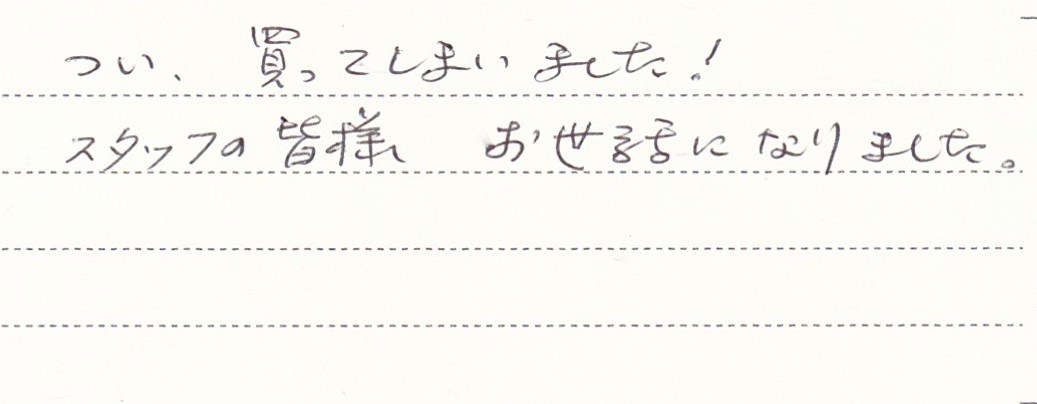 つい、買ってしまいました!
スタッフの皆様、お世話になりました。